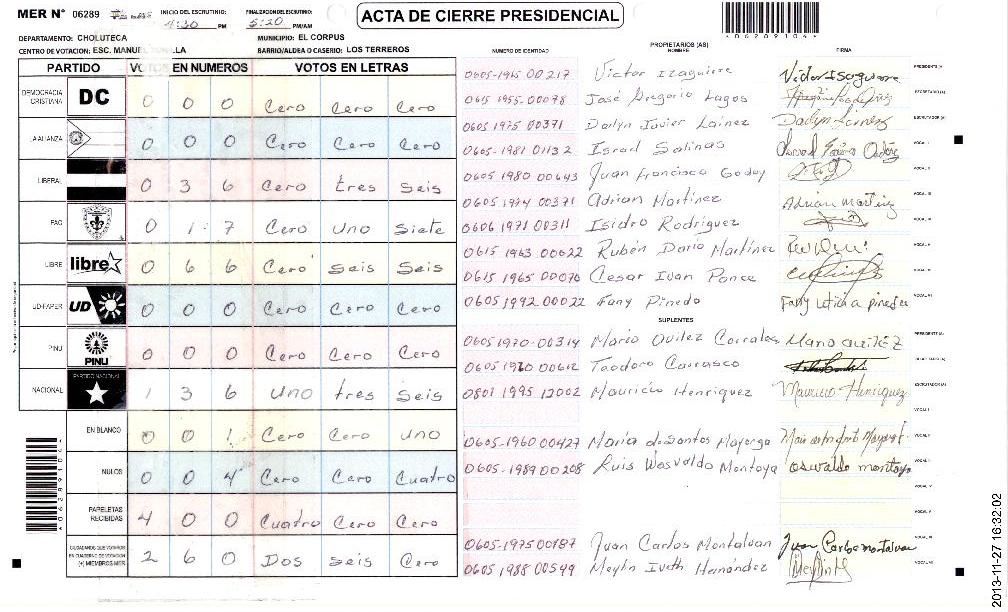 MER N° 06289 INICIO DEL ESCRUTINIO: 4:30 PM FINALIZACION DEL ESCRUTINIO: 5:20 PM/AM
ACTA DE CIERRE PRESIDENCIAL
* 0 6 2 8 9 1 0 4 *
DEPARTAMENTO: CHOLUTECA MUNICIPIO: EL CORPUS
CENTRO DE VOTACION: ESC. MANUEL BARRIO/ALDEA O CASERIO: LOS TERREROS
NUMERO DE IDENTIDAD PROPIETARIOS (AS) NOMBRE FIRMA
PARTIDO VOTOS EN NUMEROS VOTOS EN LETRAS
DEMOCRACIA CRISTIANA DC 0 0 0 Cero Cero Cero
LA ALIANZA 0 0 0 Cero Cero Cero
LIBERAL 0 3 6 Cero tres Seis
PAC 0 1 7 Cero Uno Siete
LIBRE libre 0 6 6 Cero Seis Seis
UD-FAPER UD 0 0 0 Cero Cero Cero
PINU PINU 0 0 0 Cero Cero Cero
NACIONAL PARTIDO NACIONAL 1 3 6 Uno tres Seis
EN BLANCO 0 0 1 Cero Cero uno
NULOS 0 0 4 Cero Cero Cuatro
PAPELETAS RECIBIDAS 4 0 0 Cuatro Cero Cero
CIUDADANOS QUE VOTARON EN CUADERNO DE VOTACION (+) MIEMBROS MER 2 6 0 Dos Seis Cero
0605-1965 00217 Victor Izaguirre Victor Izaguirre PRESIDENTE (A)
0615 1955-00078 José Gregorio Lagos SECRETARIO (A)
0605 1975 00371 Darlyn Javier Lainez ESCRUTADOR (A)
0605-1981 01132 Israel Salinas VOCAL I
0605 1980 00643 Juan Francisco Godoy VOCAL II
0605 1974 00371 Adrian Martinez Adrian Martinez VOCAL III
0606 1971 00311 Isidro Rodriguez
0615 1963 00622 Rubén Dario Martinez
0615 1965 00070 Cesar Ivan Ponce
0605 1992 00022 Fany Pinedo Fany Leticia pineda
SUPLENTES
0605-1970-00314 Mario Quilez Corrales Mario quilez PRESIDENTE (A)
0605 1960 00612 Teodoro Carrasco
0801 1995 12002 Mauricio Henriquez Mauricio Henriquez ESCRUTADOR (A)
VOCAL I
0605-1960 00427 Maria dosantos Mayorga VOCAL II
0605-1989 00208 Ruis Wosvaldo Montoya oswaldo montoya
VOCAL IV
VOCAL V
0605-1975 00187 Juan Carlos Montalvan Juan Carlos montalvan
0605 1988 00599 Meylin Iveth Hernandez
* 0 6 2 8 9 1 0 4 *
2013-11-27 16:32:02